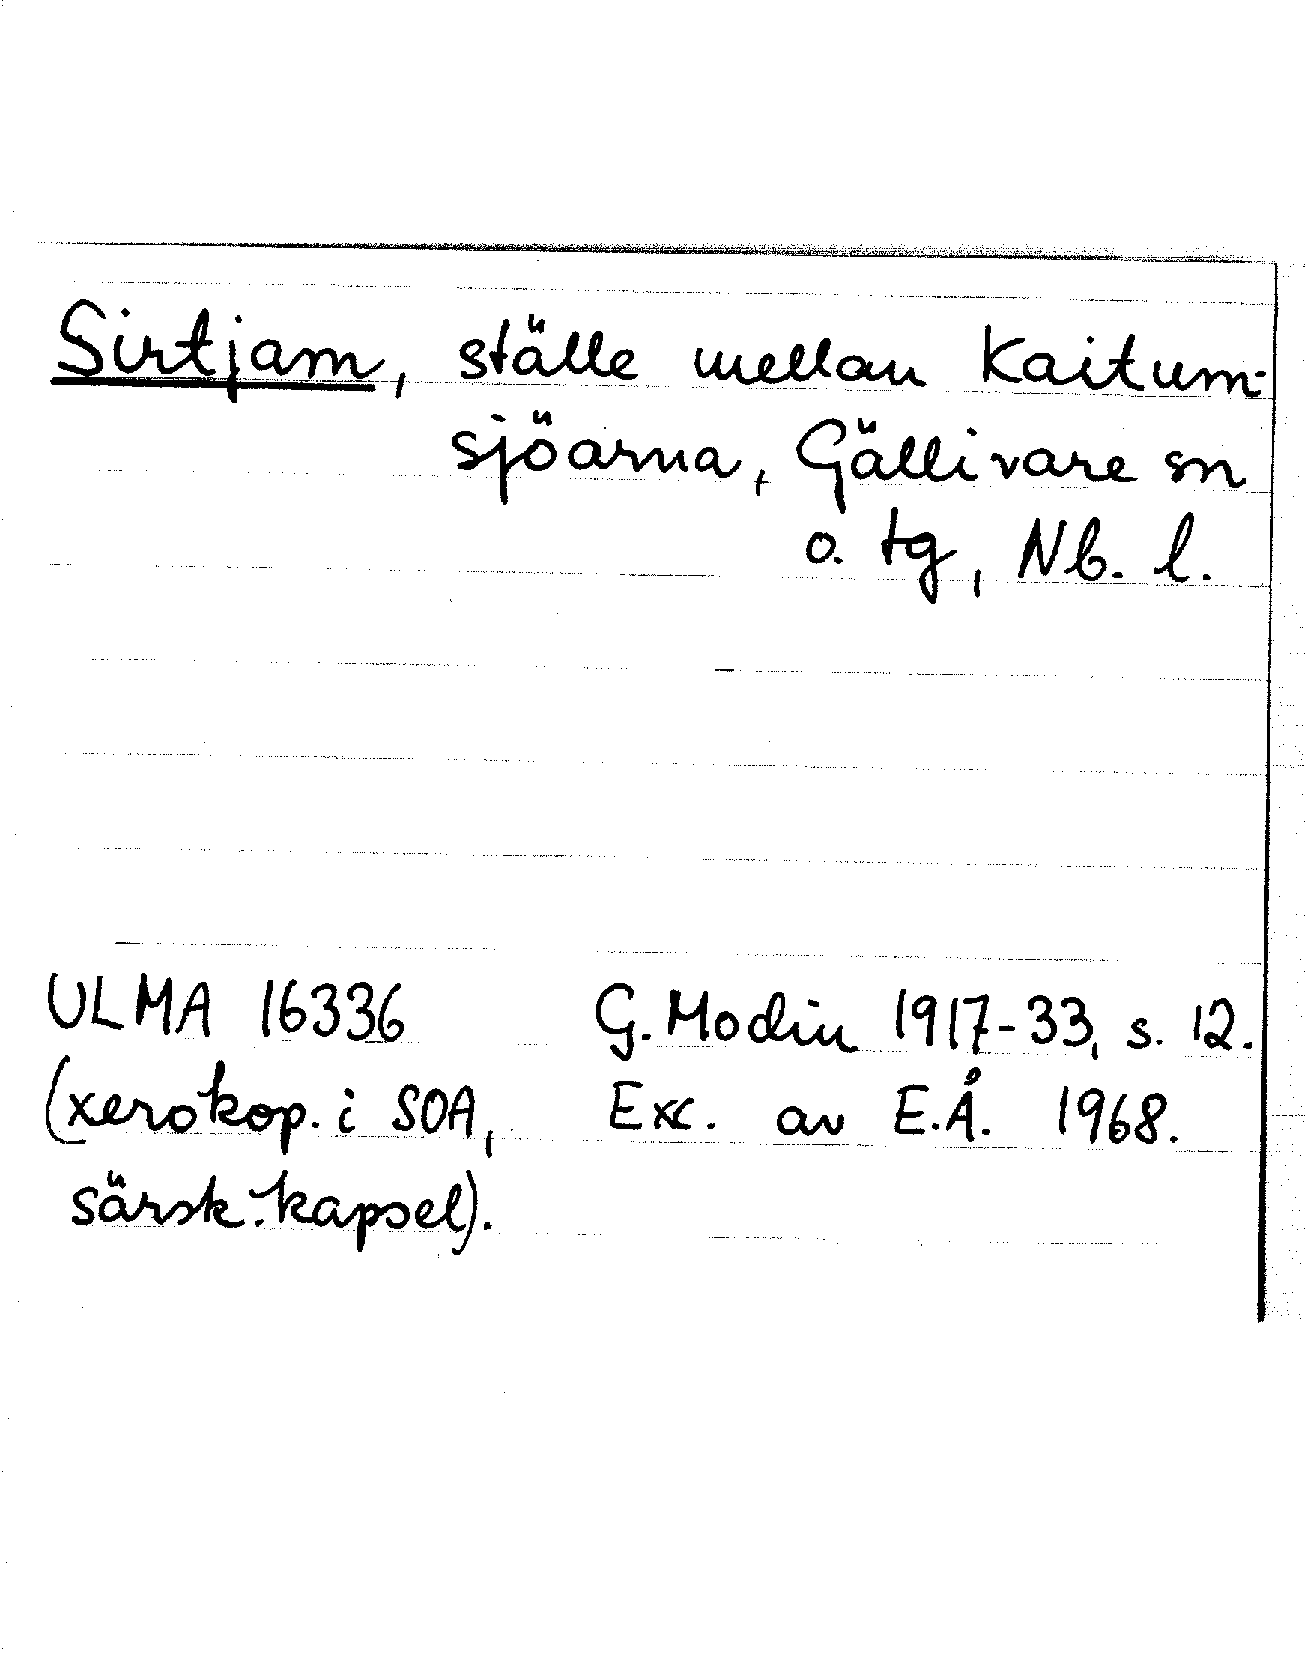 Sirtjam, ställe mellan Kaitum-
sjöarna, Gällivare sn
o. tg, Nb. l.
ULMA 16336 G. Modin 1917-33, s. 12.
(xerokop. i SOA, Exc. av E.Å. 1968.
särsk. kapsel).